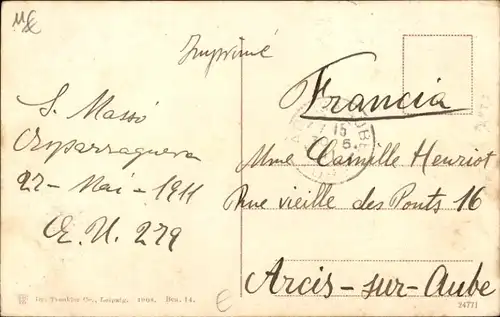 Imprimé
S. Massó
Esparraguera
27 - Mai - 1911
E. U. 279
Francia
15
Mme Camille Henriot
Rue vieille des Ponts 16
Arcis-sur-Aube
Dr. Trenkler Co., Leipzig. 1904. Bcn. 14.
24771
€